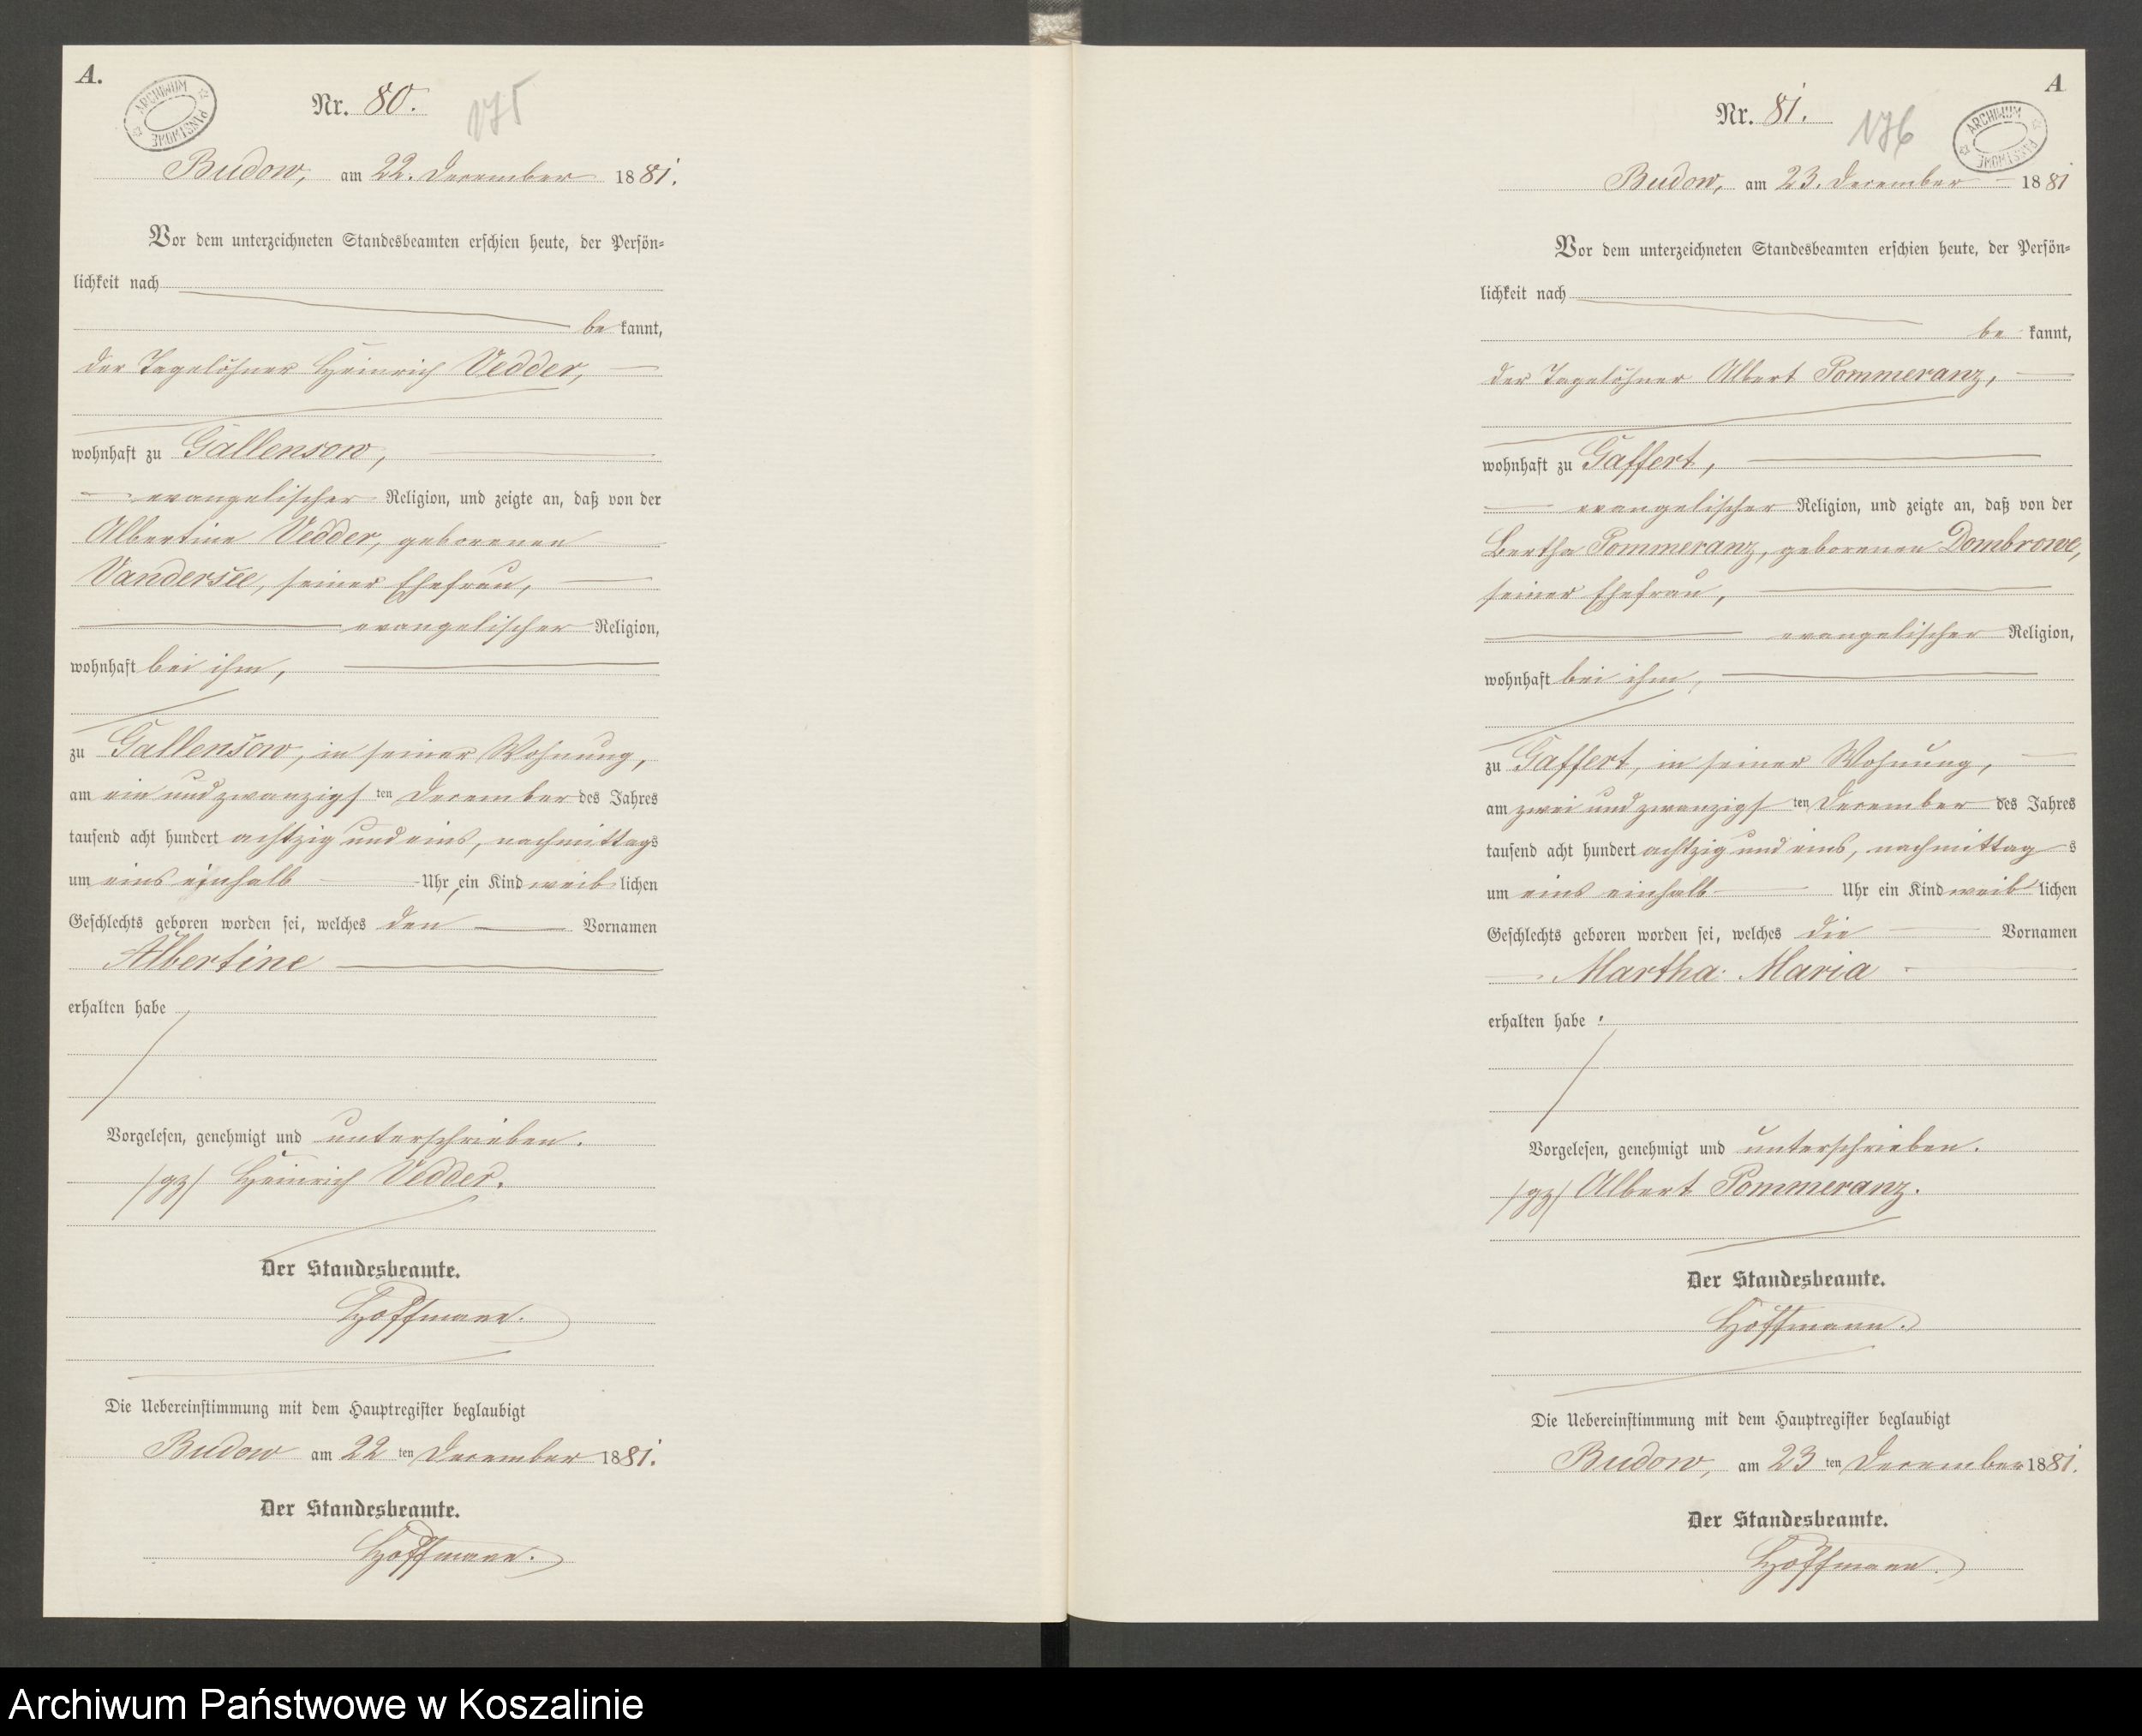 A.
ARCHIWUM PAŃSTWOWE
Nr. 80.
175
Budow, am 22. December 1881.
Vor dem unterzeichneten Standesbeamten erschien heute, der Persön-
lichkeit nach
be kannt,
der Tagelöhner Heinrich Vedder,
wohnhaft zu Gallensow,
evangelischer Religion, und zeigte an, daß von der
Albertine Vedder, geborenen
Vandersee, seiner Ehefrau,
evangelischer Religion,
wohnhaft bei ihm,
zu Gallensow, in seiner Wohnung,
am ein und zwanzigsten December des Jahres
tausend acht hundert achtzig und eins, nachmittags
um eins einhalb Uhr, ein Kind weiblichen
Geschlechts geboren worden sei, welches den Vornamen
Albertine
erhalten habe
Vorgelesen, genehmigt und unterschrieben.
/gz/ Heinrich Vedder.
Der Standesbeamte.
Hoffmann.
Die Uebereinstimmung mit dem Hauptregister beglaubigt
Budow am 22ten December 1881.
Der Standesbeamte.
Hoffmann.
A
ARCHIWUM PAŃSTWOWE
Nr. 81.
176
Budow, am 23. December 1881
Vor dem unterzeichneten Standesbeamten erschien heute, der Persön-
lichkeit nach
be kannt,
der Tagelöhner Albert Pommeranz,
wohnhaft zu Gaffert,
evangelischer Religion, und zeigte an, daß von der
Bertha Pommeranz, geborenen Dombrowe,
seiner Ehefrau,
evangelischer Religion,
wohnhaft bei ihm,
zu Gaffert, in seiner Wohnung,
am zwei und zwanzigsten December des Jahres
tausend acht hundert achtzig und eins, nachmittags
um eins einhalb Uhr ein Kind weiblichen
Geschlechts geboren worden sei, welches die Vornamen
Martha Maria
erhalten habe.
Vorgelesen, genehmigt und unterschrieben.
/gz/ Albert Pommeranz.
Der Standesbeamte.
Hoffmann.
Die Uebereinstimmung mit dem Hauptregister beglaubigt
Budow, am 23ten December 1881.
Der Standesbeamte.
Hoffmann.
Archiwum Państwowe w Koszalinie